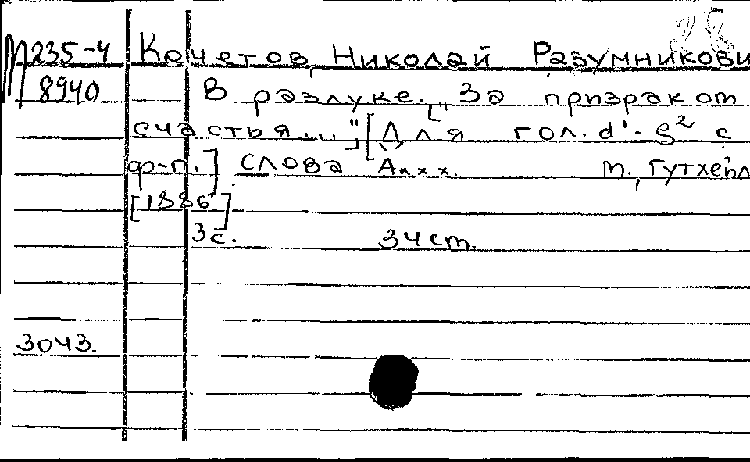 М235-4 Кочетов, Николай Разумникови
8940 В разлуке. ["За призраком
счастья..."; [Для гол. d'-g² с
ф-п.] слова А*** м., Гутхейл
[1886]
3с. 34ст.
3043.